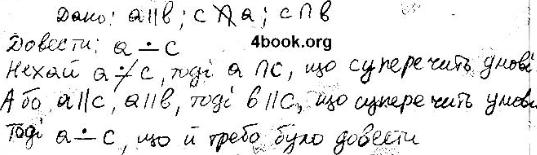 Дано: a∥b; c∦a; c∩b
Довести: a ∸ c
4book.org
Нехай a ∸̸ c, тоді a∩c, що суперечить умові
Або a∥c, a∥b, тоді b∥c, що суперечить умові
Тоді a ∸ c, що й треба було довести